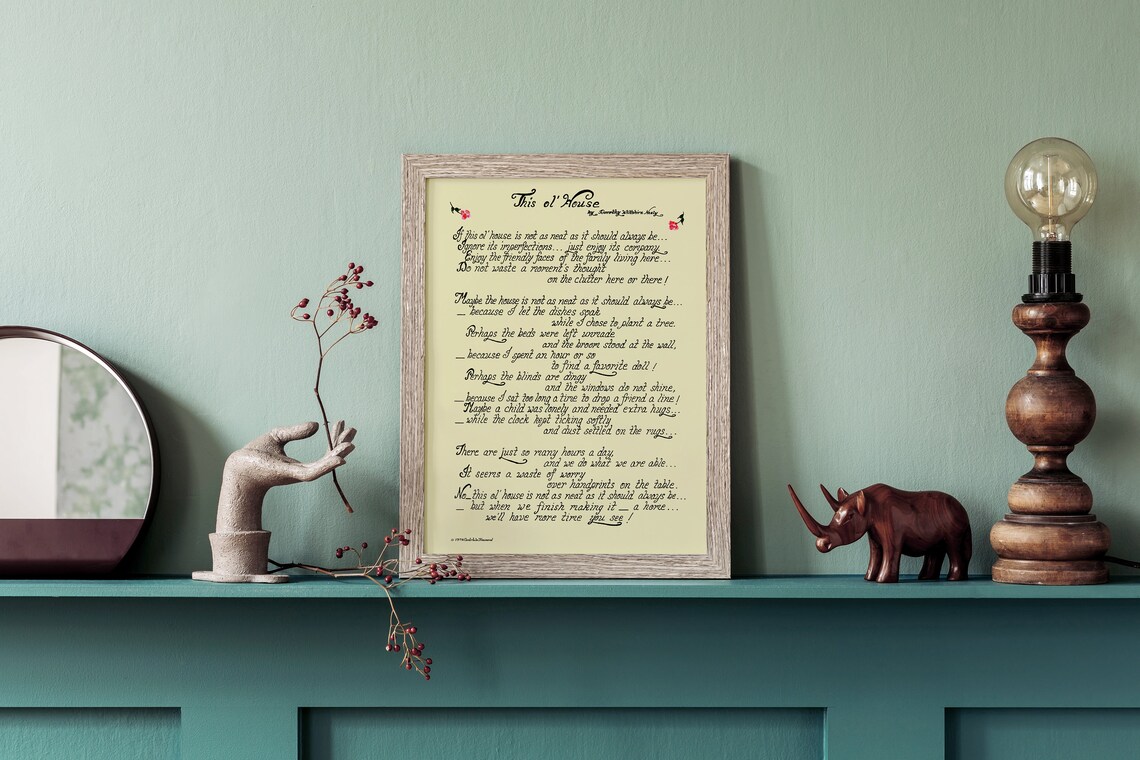 This ol' House
by Dorothy Wiltshire Neely
If this ol' house is not as neat as it should always be...
Ignore its imperfections... just enjoy its company
Enjoy the friendly faces of the family living here...
Do not waste a moment's thought
on the clutter here or there!
Maybe the house is not as neat as it should always be...
_ because I let the dishes soak
while I chose to plant a tree.
Perhaps the beds were left unmade
and the broom stood at the wall,
_ because I spent an hour or so
to find a favorite doll!
Perhaps the blinds are dingy
and the windows do not shine,
_ because I sat too long a time to drop a friend a line!
Maybe a child was lonely and needed extra hugs...
_ while the clock kept ticking softly
and dust settled on the rugs...
There are just so many hours a day,
and we do what we are able...
It seems a waste of worry
over handprints on the table.
No_ this ol' house is not as neat as it should always be...
_ but when we finish making it _ a home...
we'll have more time you see!
© 1974